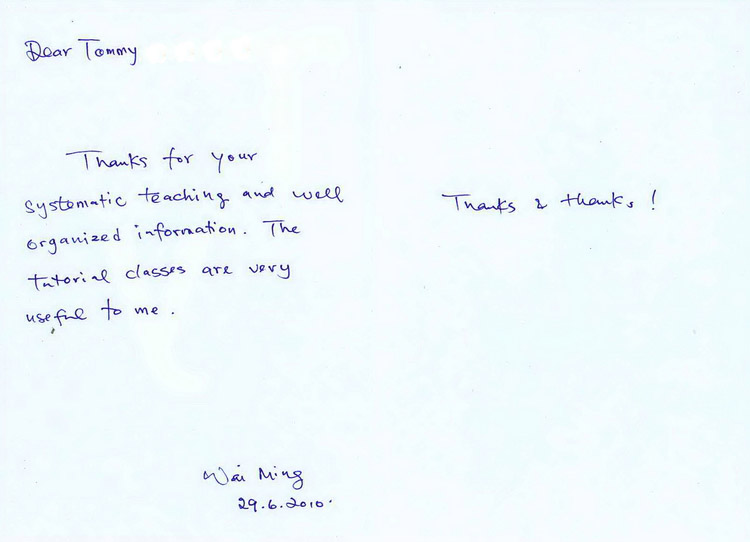 Dear Tommy
Thanks for your
systematic teaching and well
organized information. The
tutorial classes are very
useful to me.
Wai Ming
29.6.2010.
Thanks & thanks!